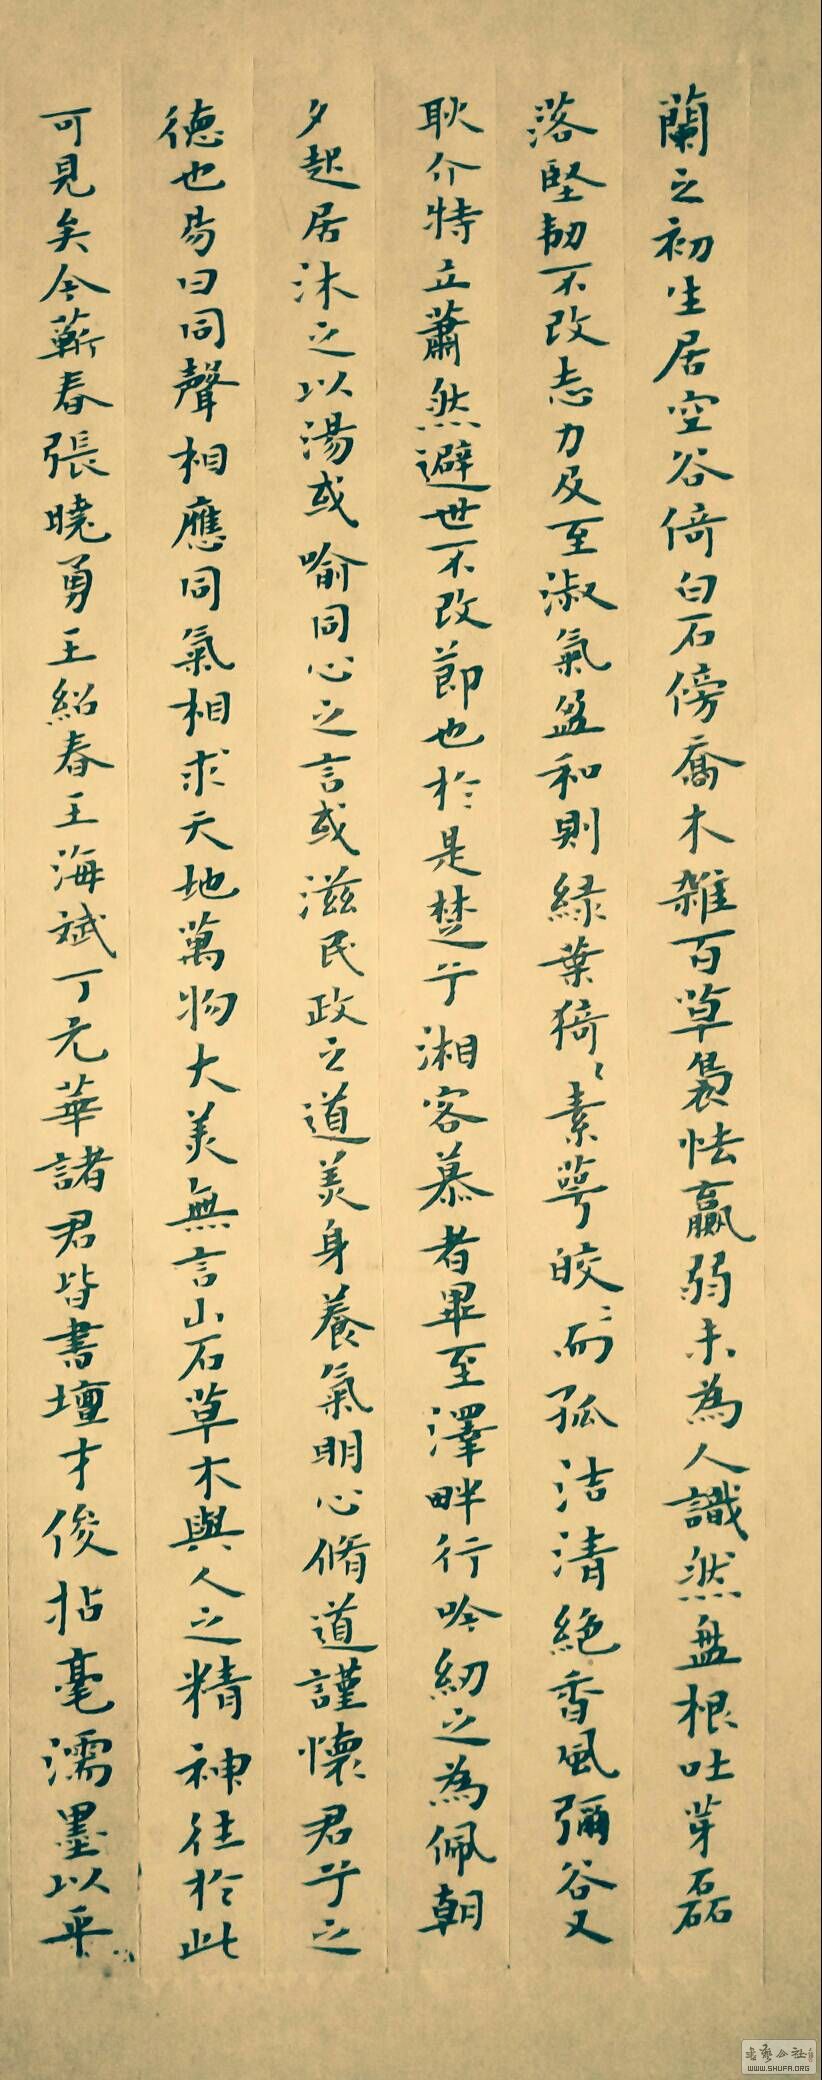 蘭之初生居空谷倚白石傍喬木雜百草裊怯羸弱未為人識然盤根吐芽磊
落堅韌不改志力及至淑氣盈和則綠葉猗〻素萼皎〻而孤洁清絕香風彌谷又
耿介特立蕭然避世不改節也於是楚兮湘客慕者畢至澤畔行吟紉之為佩朝
夕起居沐之以湯或喻同心之言或滋民政之道美身養氣明心脩道謹懷君兮之
德也易曰同聲相應同氣相求天地萬物大美無言山石草木與人之精神往於此
可見矣今蘄春張曉勇王紹春王海斌丁元華諸君皆書壇才俊拈毫濡墨以乎
書藝公社
WWW.SHUFA.ORG